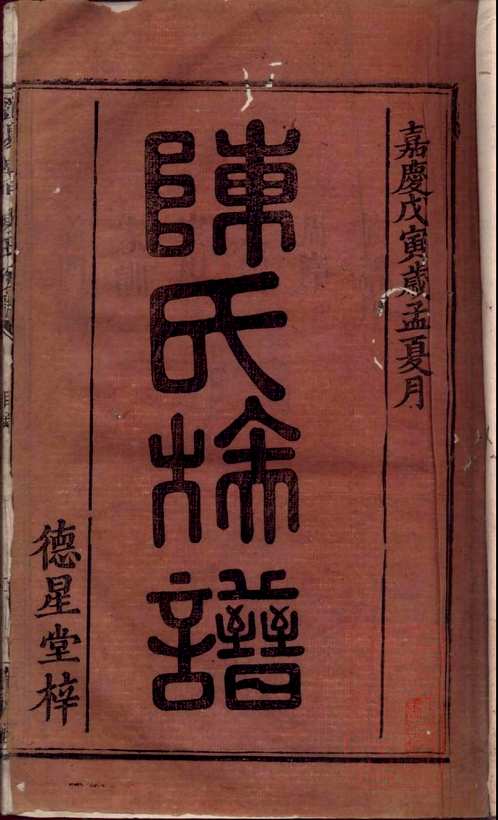 嘉慶戊寅歲孟夏月
陳氏族譜
德星堂梓